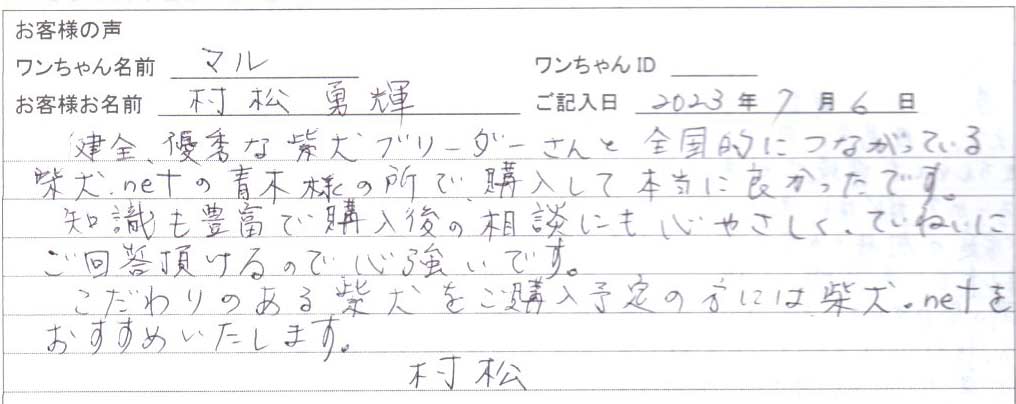 お客様の声
ワンちゃん名前 マル ワンちゃん ID
お客様お名前 村松勇輝 ご記入日 2023年7月6日
健全、優秀な柴犬ブリーダーさんと全国的につながっている
柴犬.netの青木様の所で購入して本当に良かったです。
知識も豊富で購入後の相談にも心やさしく、ていねいに
ご回答頂けるので心強いです。
こだわりのある柴犬をご購入予定の方には柴犬.netを
おすすめいたします。
村松